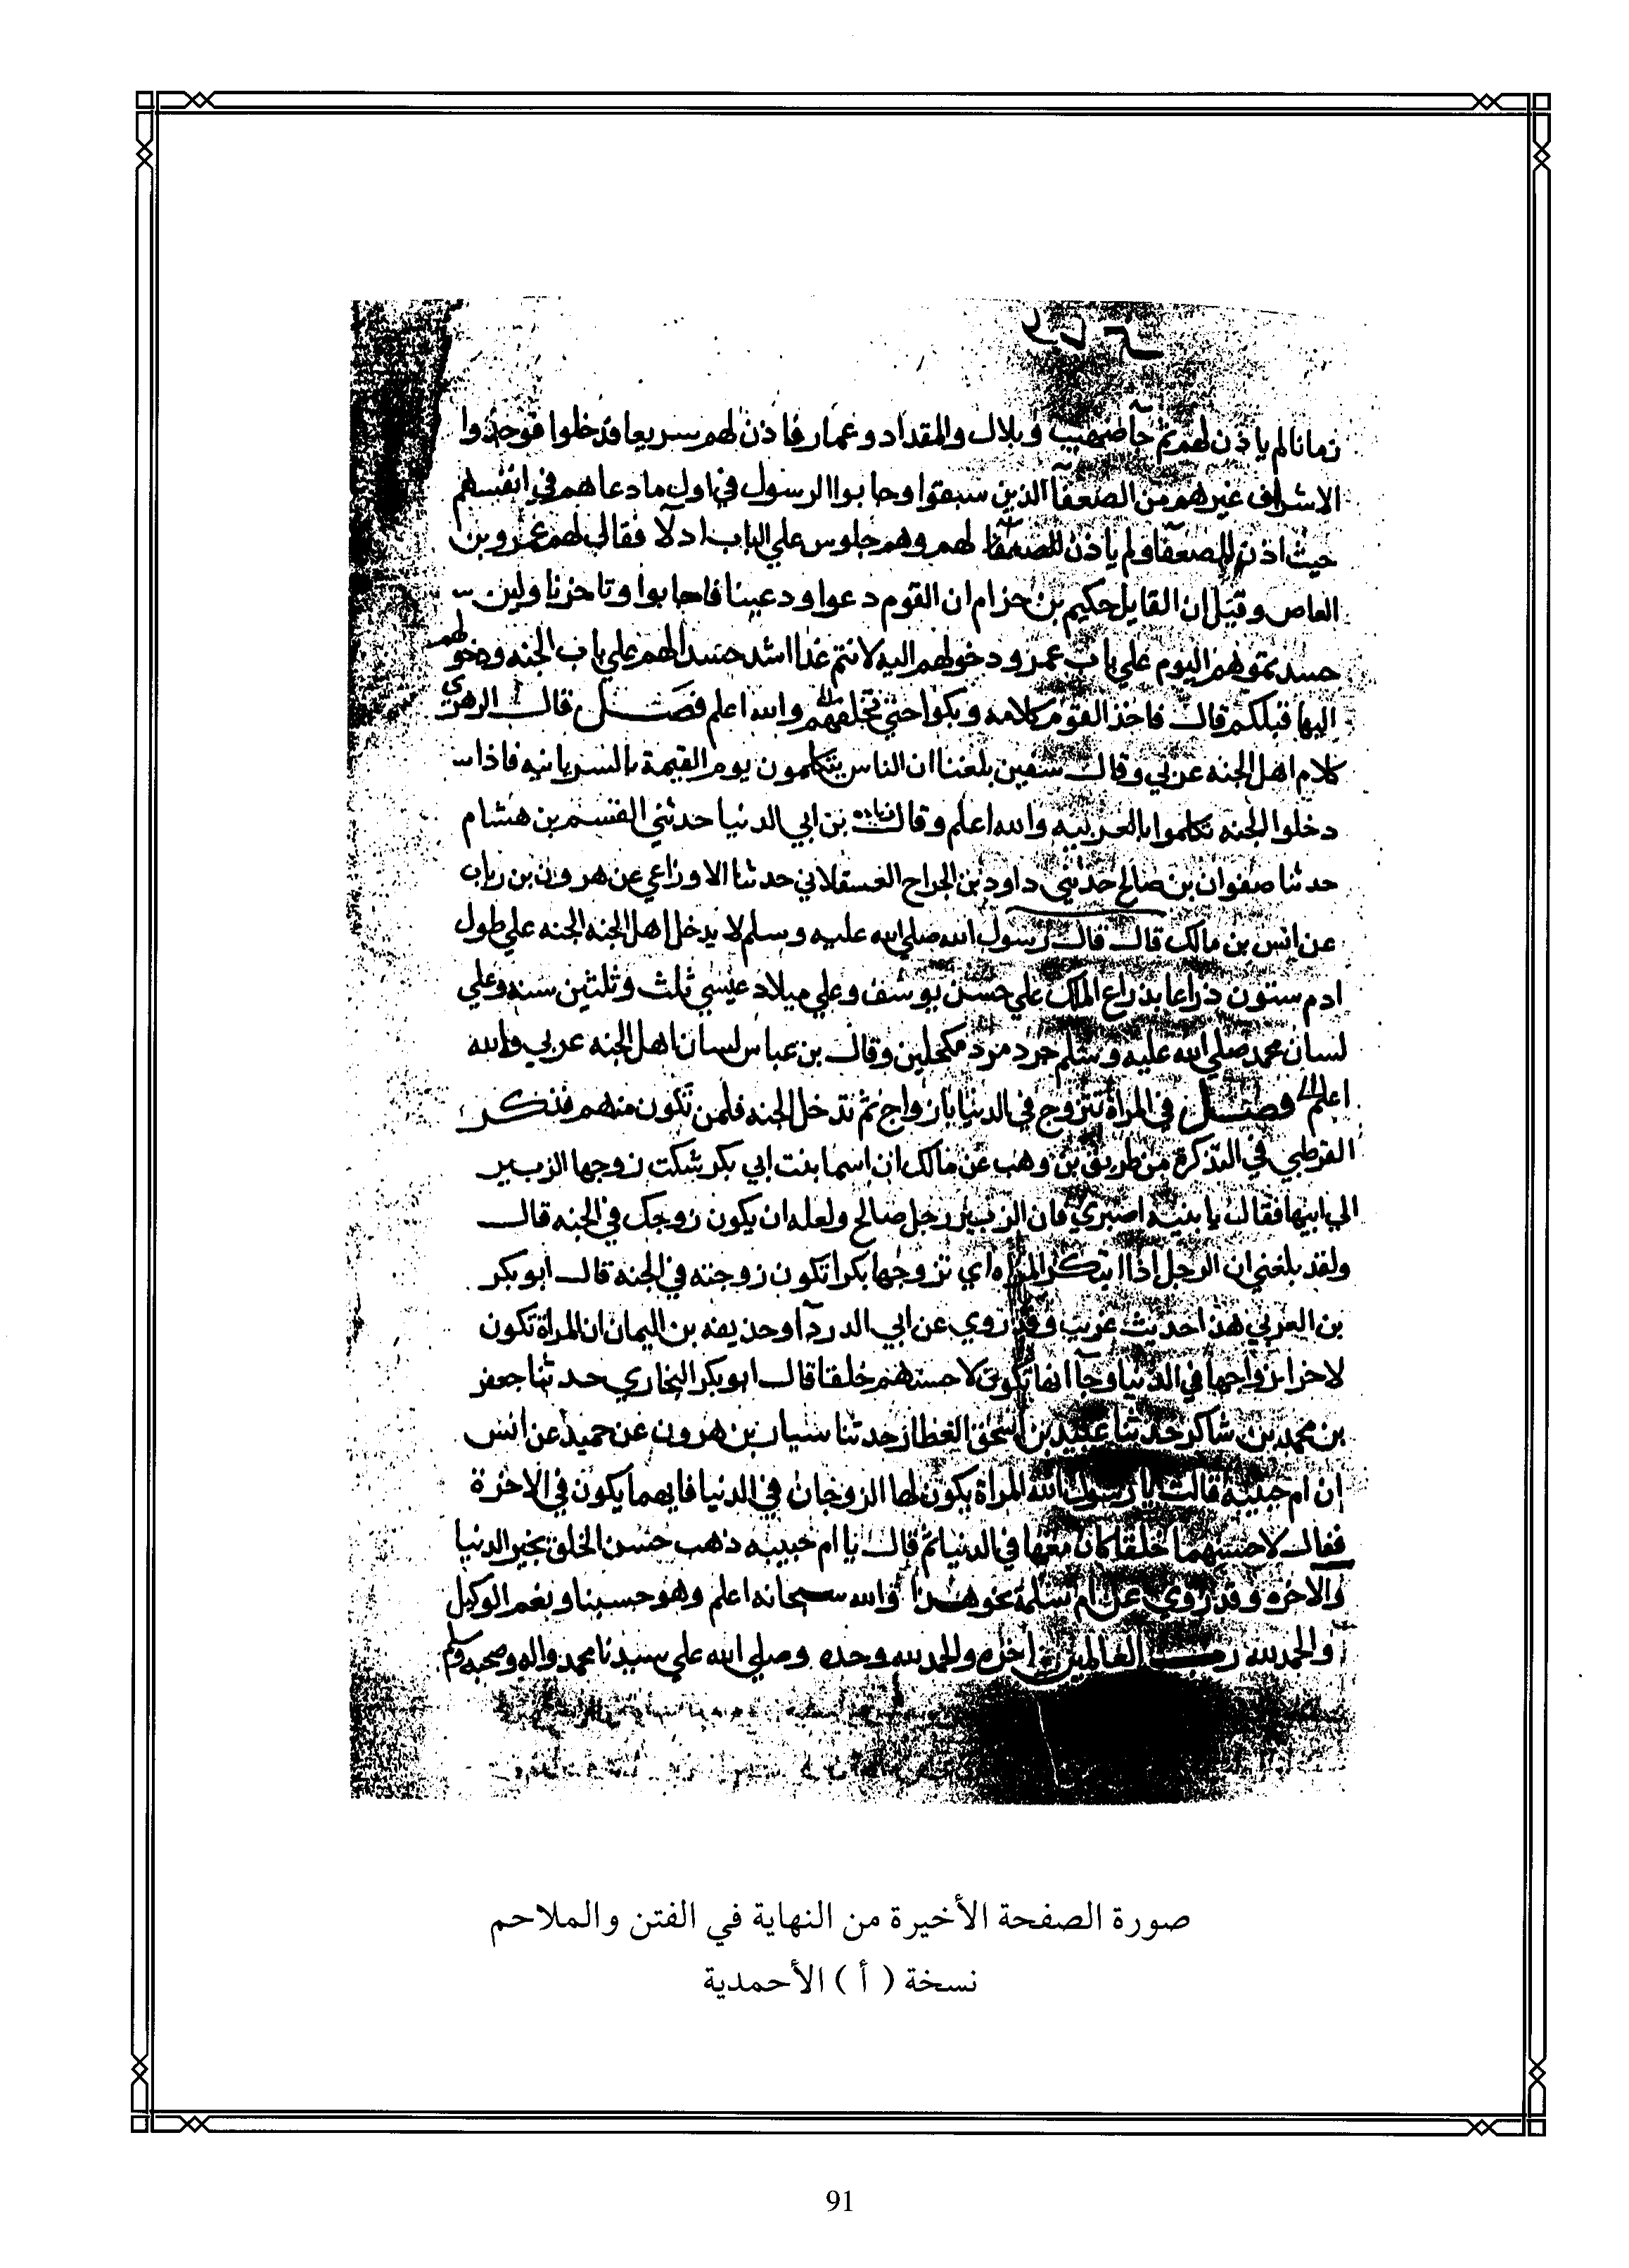 زمانا لم ياذن لهم ثم جآ صهيب وبلال والمقداد وعمار فاذن لهم سريعا فدخلوا فوجدوا
الاشراف غيرهم من الضعفآ الذين سبقوا وجابوا الرسول في اول ما دعاهم في انفسهم
حيث اذن للضعفآ ولم ياذن لهم وهم جلوس علي الباب فقال لهم عمرو بن
العاص وقيل ان القايل حكيم بن حزام ان القوم دعوا ودعينا فاجابوا وتاخرنا ولين
حسدتموهم اليوم علي باب عمر ودخولهم اليه لانتم غدا اشد حسدا لهم علي باب الجنه ودخولهم
اليها قبلكم قال فاخذ القوم كلامه وبكوا حتي والله اعلم فصل قال الزهري
كلام اهل الجنه عربي وقال سفين بلغنا ان الناس يتكلمون يوم القيمة بالسريانيه فاذا
دخلوا الجنه تكلموا بالعربيه والله اعلم وقال بن ابي الدنيا حدثني القسم بن هشام
حدثنا صفوان بن صالح حدثني داود بن الجراح العسقلاني حدثنا الاوزاعي عن هرون بن رياب
عن انس بن مالك قال قال رسول الله صلي الله عليه وسلم لا يدخل اهل الجنه الجنه علي طول
ادم ستون ذراعا بذراع الملك علي حسن يوسف وعلي ميلاد عيسي ثلث وثلثين سنه وعلي
لسان محمد صلي الله عليه وسلم جرد مرد مكحلين وقال بن عباس لسان اهل الجنه عربي والله
اعلم فصل في المراة تتزوج في الدنيا بازواج ثم تدخل الجنه فلمن تكون منهم فذكر
القرطبي في التذكرة من طريق بن وهب عن مالك ان اسما بنت ابي بكر شكت زوجها الزبير
الي ابيها فقال يا بنيه اصبري فان الزبير رجل صالح ولعله ان يكون زوجك في الجنه قال
ولقد بلغني ان الرجل اذا ابتكر المراه اي تزوجها بكرا تكون زوجته في الجنه قال ابو بكر
بن العربي هذا حديث غريب وقد روي عن ابي الدردآ وحذيفه بن اليمان ان المراة تكون
لاخر ازواجها في الدنيا وجآ انها تكون لاحسنهم خلقا قال ابو بكر النجاري حدثنا جعفر
بن محمد بن شاكر حدثنا عبيد بن اسحق العطار حدثنا سيار بن هرون عن حميد عن انس
ان ام حبيبه قالت يا رسول الله المراة يكون لها الزوجان في الدنيا فايهما يكون في الاخرة
فقال لاحسنهما خلقا كان معها في الدنيا ثم قال يا ام حبيبه ذهب حسن الخلق بخير الدنيا
والاخره وقد روي عن ام سلمة نحو هذا والله سبحانه اعلم وهو حسبنا ونعم الوكيل
والحمد لله رب العالمين اخره والحمد لله وحده وصلي الله علي سيدنا محمد واله وصحبه وسلم
صورة الصفحة الأخيرة من النهاية في الفتن والملاحم
نسخة ( أ ) الأحمدية
91